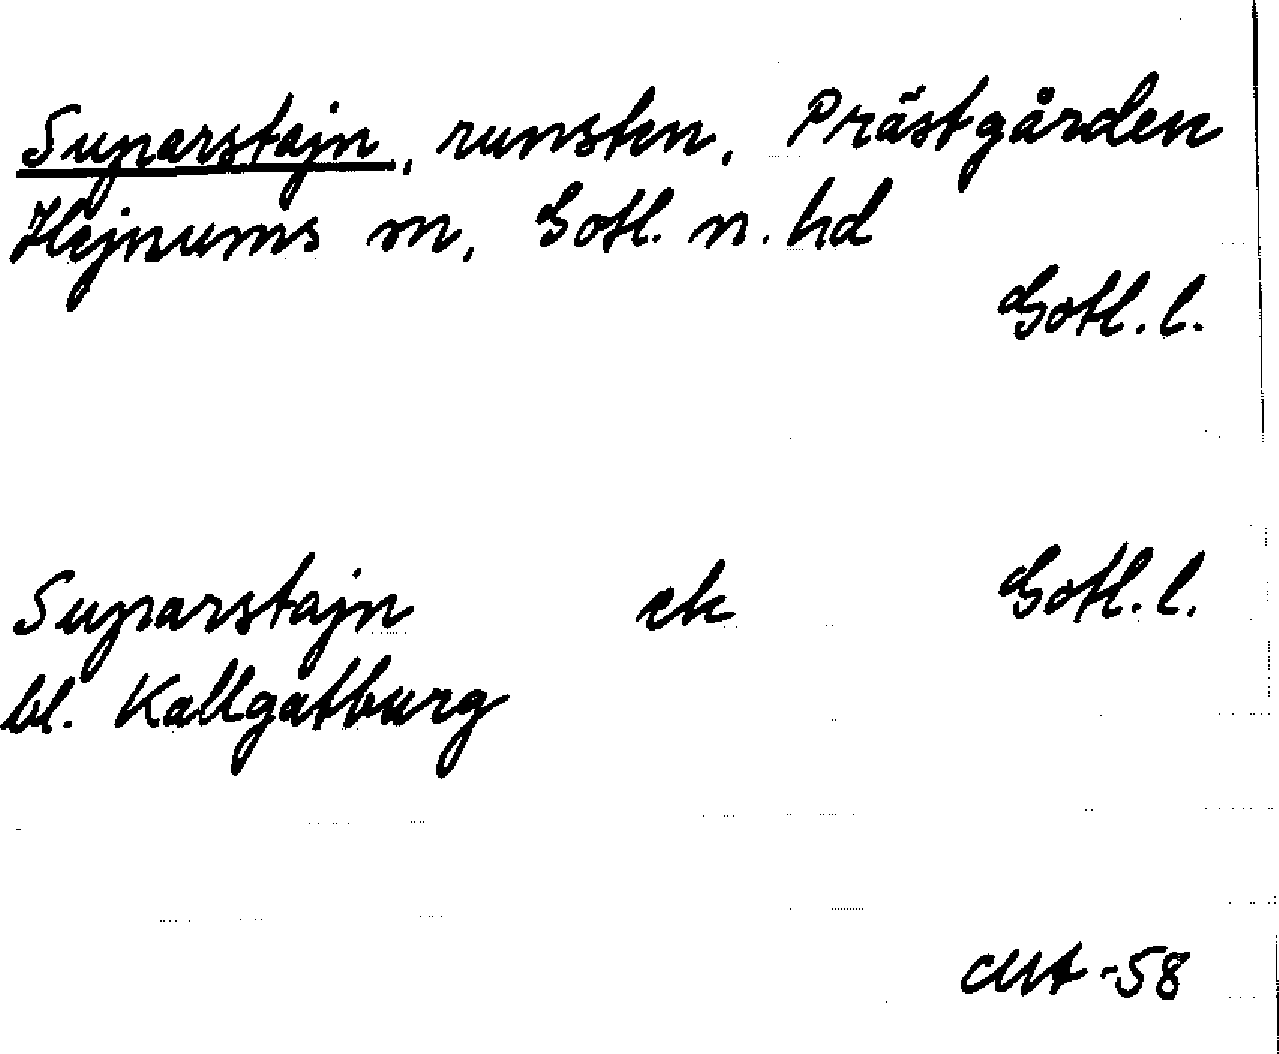 Suparstajn, runsten, Prästgården
Hejnums sn, Gotl. n. hd
Gotl. l.
Suparstajn ek Gotl. l.
bl. Kallgatburg
-58